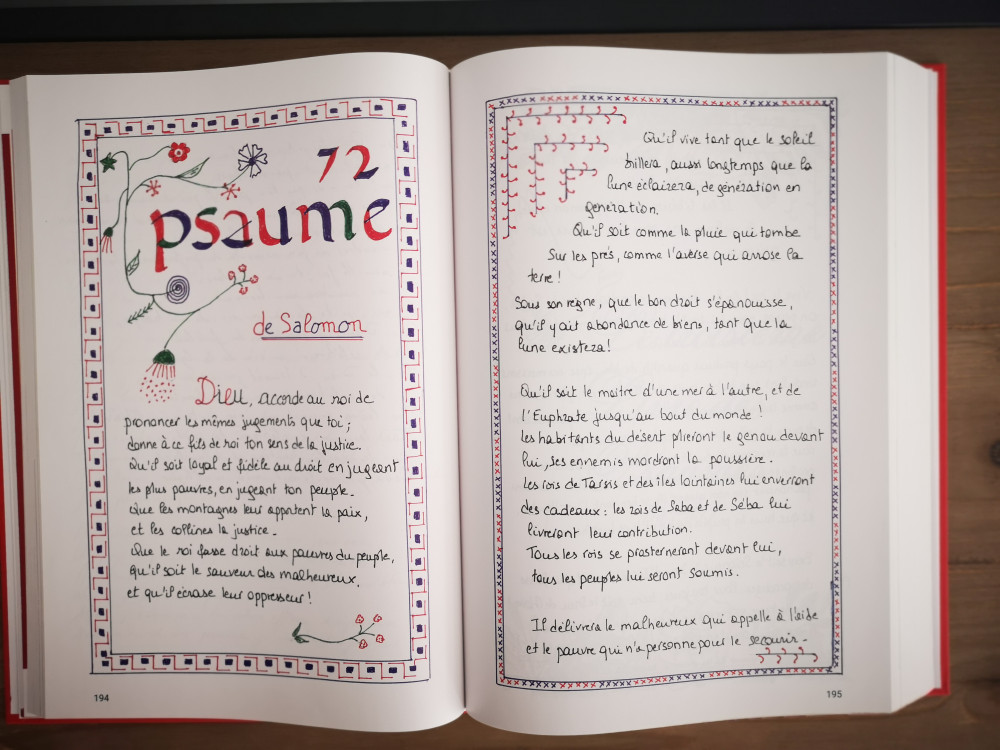 72
psaume
de Salomon
Dieu, accorde au roi de
prononcer les mêmes jugements que toi ;
donne à ce fils de roi ton sens de la justice.
Qu'il soit loyal et fidèle au droit en jugeant
les plus pauvres, en jugeant ton peuple.
Que les montagnes leur apportent la paix,
et les collines la justice.
Que le roi fasse droit aux pauvres du peuple,
qu'il soit le sauveur des malheureux,
et qu'il écrase leur oppresseur !
194
Qu'il vive tant que le soleil
brillera, aussi longtemps que la
lune éclairera, de génération en
génération.
Qu'il soit comme la pluie qui tombe
Sur les prés, comme l'averse qui arrose la
terre !
Sous son règne, que le bon droit s'épanouisse,
qu'il y ait abondance de biens, tant que la
lune existera !
Qu'il soit le maître d'une mer à l'autre, et de
l'Euphrate jusqu'au bout du monde !
Les habitants du désert plieront le genou devant
lui, ses ennemis mordront la poussière.
Les rois de Tarsis et des îles lointaines lui enverront
des cadeaux : les rois de Saba et de Séba lui
livreront leur contribution.
Tous les rois se prosterneront devant lui,
tous les peuples lui seront soumis.
Il délivrera le malheureux qui appelle à l'aide
et le pauvre qui n'a personne pour le secourir.
195